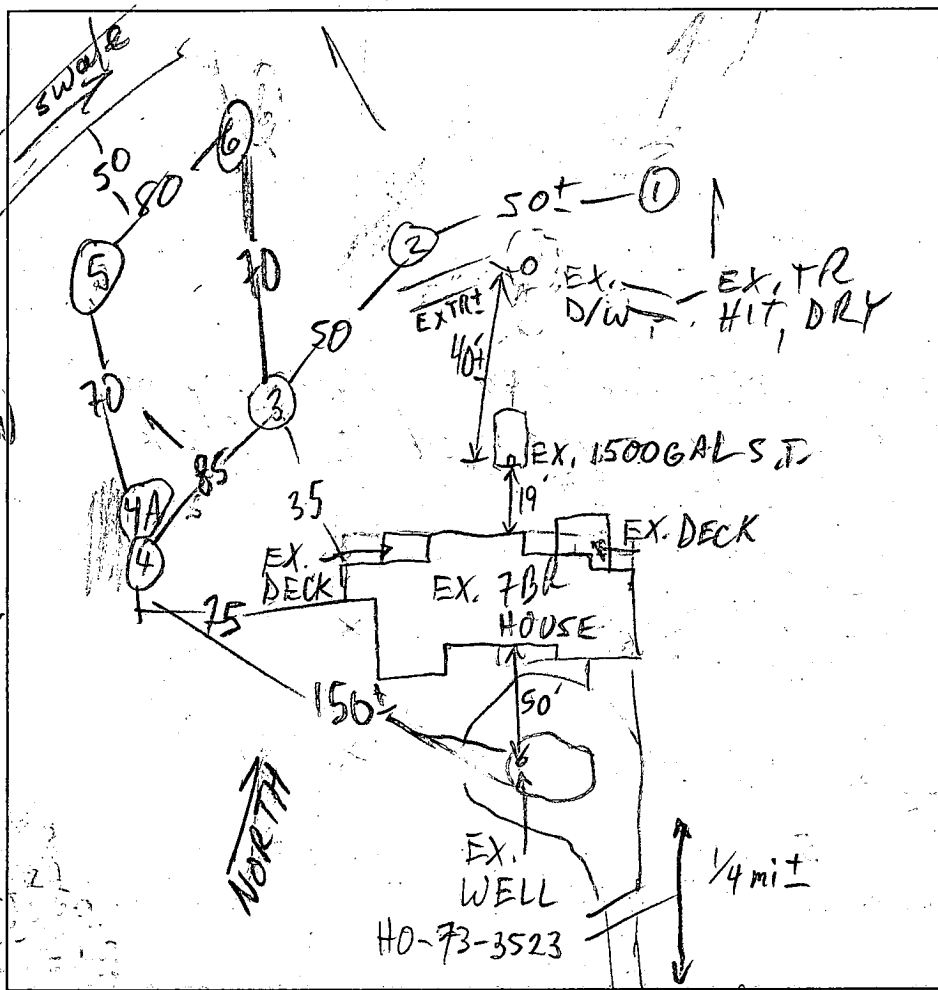 swale
50
80
6
5
70
70
50
2
50±
1
EX TR±
EX.
D/W
EX. TR
HIT, DRY
40'±
3
85
4A
4
35
EX. 1500 GAL S.T.
19'
EX.
DECK
EX. DECK
EX. 7BR
HOUSE
75
150±
50'
NORTH
EX.
WELL
HO-73-3523
1/4 mi±